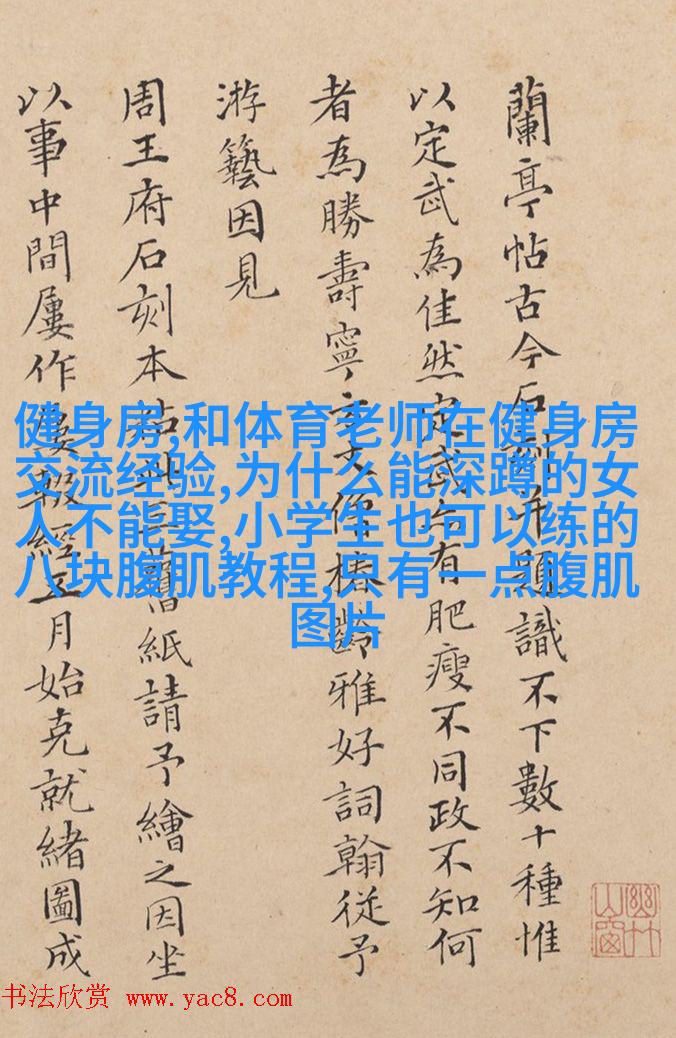 蘭亭帖古今石題識不下數十種惟
以定武為佳然定武有肥瘦不同政不知何
者為勝壽寧僧椿齡雅好詞翰従予
游藝因見
周王府石刻本舊紙請予繪之因坐
以事中間屢作屢輟經五月始克就緒圖成
幽竹山窗
健身房,和体育老师在健身房
交流经验,为什么能深蹲的女
人不能娶,小学生也可以练的
八块腹肌教程,只有一点腹肌
图片
书法欣赏 www.yac8.com